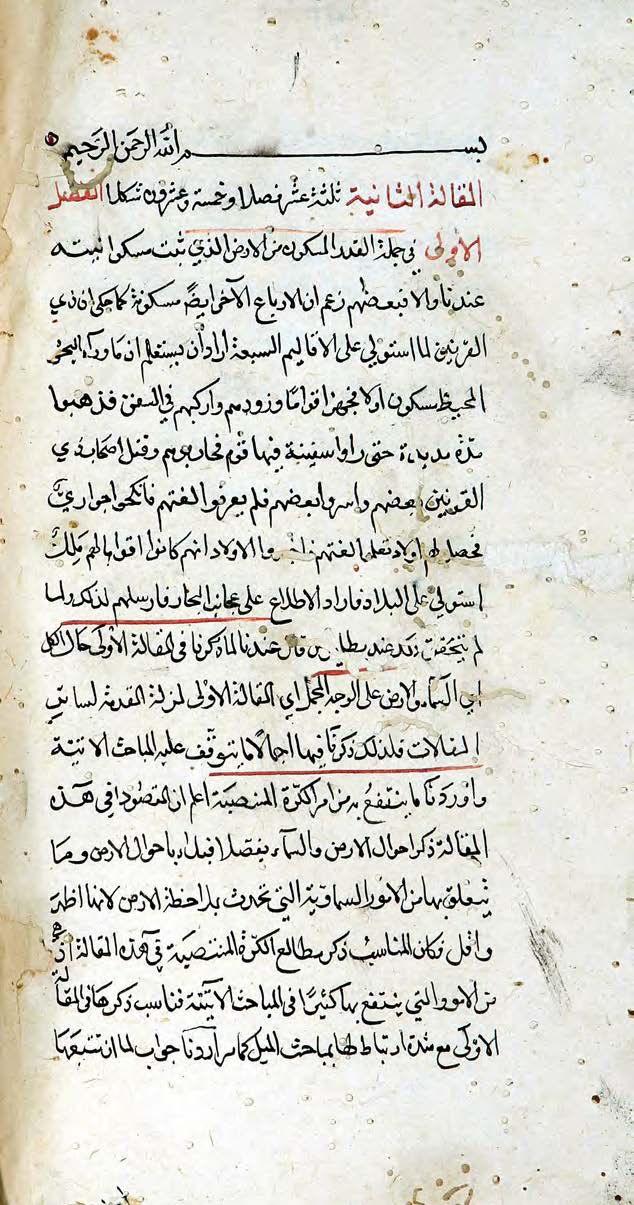 بسم الله الرحمن الرحيم
المقالة الثانية ثلثة عشر فصلا وخمسة وعشرون شكلا الفصل
الاولى في جملة القدر المسكون من الارض الذي ثبت مسكونيته
عندنا والا فبعضهم زعم ان الارباع الآخر ايضا مسكونة كما حكي ان ذي
القرنين لما استولي على الاقاليم السبعة اراد ان يستعلم ان ما وراء البحر
المحيط مسكون اولا فجهز اقواما وزودهم واركبهم في السفن فذهبوا
مدة مديدة حتى راوا سفينة فيها قوم فحاربوهم وقتل اصحاب ذي
القرنين بعضهم واسروا بعضهم فلم يعرفوا لغتهم فانكحوا جواري
فحصل لهم اولاد تعلم لغتهم والاولاد انهم كانوا اقواما لهم ملك
استولي على البلاد فاراد الاطلاع على عجائب البحار فارسلهم لذلك ولما
لم يتحقق ذلك عند بطلميوس قال عندنا لما ذكرنا في المقالة الأولى حال الكل
اي السماء والارض على الوجه المجمل اي المقالة الاولى لمنزلة المقدمة لسائر
المقالات فلذلك ذكرنا فيها اجمالا ما يتوقف عليه المباحث الاتية
واوردنا ما ينتفع به من امر الكرة المنتصبة اعلم ان المقصود في هذه
المقالة ذكر احوال الارض والسماء بفصلا فبداء باحوال الارض وما
يتعلق بها من الامور السماوية التي تحدث بملاحظة الارض لانها اظهر
واقل فكان المناسب ذكر مطالع الكرة المنتصبة في هذه المقالة اذ هي
من الامور التي ينتفع بها كثيرا في المباحث الآتية فناسب ذكرها في المقالة
الاولى مع شدة ارتباطها بمباحث الميل كما مر اردنا جواب لما ان نتبعها